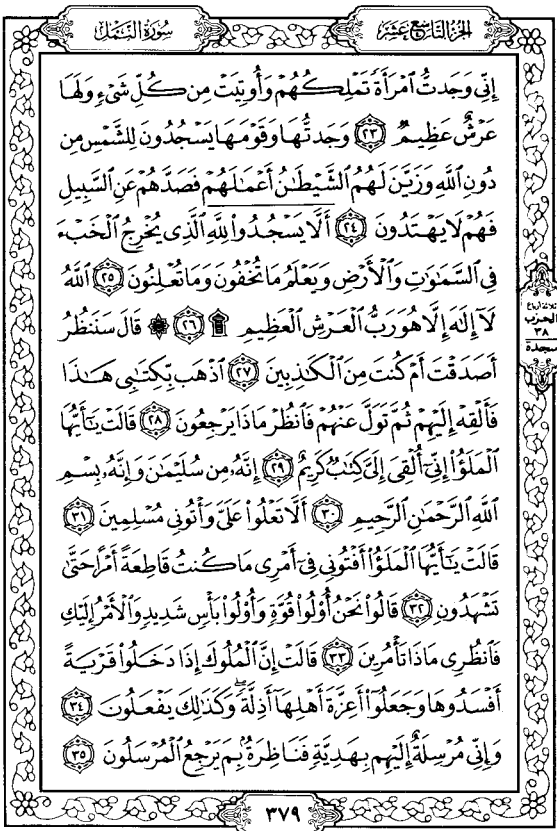 الجزء التاسع عشر
سورة النمل
إِنِّي وَجَدتُّ ٱمْرَأَةً تَمْلِكُهُمْ وَأُوتِيَتْ مِن كُلِّ شَىْءٍ وَلَهَا
عَرْشٌ عَظِيمٌ ٢٣ وَجَدتُّهَا وَقَوْمَهَا يَسْجُدُونَ لِلشَّمْسِ مِن
دُونِ ٱللَّهِ وَزَيَّنَ لَهُمُ ٱلشَّيْطَٰنُ أَعْمَٰلَهُمْ فَصَدَّهُمْ عَنِ ٱلسَّبِيلِ
فَهُمْ لَا يَهْتَدُونَ ٢٤ أَلَّا يَسْجُدُوا۟ لِلَّهِ ٱلَّذِى يُخْرِجُ ٱلْخَبْءَ
فِى ٱلسَّمَٰوَٰتِ وَٱلْأَرْضِ وَيَعْلَمُ مَا تُخْفُونَ وَمَا تُعْلِنُونَ ٢٥ ٱللَّهُ
لَآ إِلَٰهَ إِلَّا هُوَ رَبُّ ٱلْعَرْشِ ٱلْعَظِيمِ ۩ ٢٦ ۞ قَالَ سَنَنظُرُ
أَصَدَقْتَ أَمْ كُنتَ مِنَ ٱلْكَٰذِبِينَ ٢٧ ٱذْهَب بِّكِتَٰبِى هَٰذَا
فَأَلْقِهْ إِلَيْهِمْ ثُمَّ تَوَلَّ عَنْهُمْ فَٱنظُرْ مَاذَا يَرْجِعُونَ ٢٨ قَالَتْ يَٰٓأَيُّهَا
ٱلْمَلَؤُا۟ إِنِّىٓ أُلْقِىَ إِلَىَّ كِتَٰبٌ كَرِيمٌ ٢٩ إِنَّهُۥ مِن سُلَيْمَٰنَ وَإِنَّهُۥ بِسْمِ
ٱللَّهِ ٱلرَّحْمَٰنِ ٱلرَّحِيمِ ٣٠ أَلَّا تَعْلُوا۟ عَلَىَّ وَأْتُونِى مُسْلِمِينَ ٣١
قَالَتْ يَٰٓأَيُّهَا ٱلْمَلَؤُا۟ أَفْتُونِى فِىٓ أَمْرِى مَا كُنتُ قَاطِعَةً أَمْرًا حَتَّىٰ
تَشْهَدُونِ ٣٢ قَالُوا۟ نَحْنُ أُو۟لُوا۟ قُوَّةٍ وَأُو۟لُوا۟ بَأْسٍ شَدِيدٍ وَٱلْأَمْرُ إِلَيْكِ
فَٱنظُرِى مَاذَا تَأْمُرِينَ ٣٣ قَالَتْ إِنَّ ٱلْمُلُوكَ إِذَا دَخَلُوا۟ قَرْيَةً
أَفْسَدُوهَا وَجَعَلُوٓا۟ أَعِزَّةَ أَهْلِهَآ أَذِلَّةً ۖ وَكَذَٰلِكَ يَفْعَلُونَ ٣٤
وَإِنِّى مُرْسِلَةٌ إِلَيْهِم بِهَدِيَّةٍ فَنَاظِرَةٌۢ بِمَ يَرْجِعُ ٱلْمُرْسَلُونَ ٣٥
ثلاثة أرباع
الحزب
٣٨
سجدة
٣٧٩